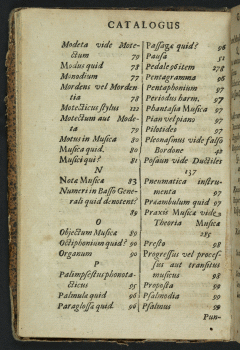 CATALOGUS
Modeta vide Mote-
ctum 79
Modus quid 78
Monodium 77
Mordens vel Morden
tia 78
Motecticus stylus 122
Motectum aut Mode-
ta 79
Motus in Musica 80
Musica quid. 80
Musici qui? 81
N
Nota Musica 83
Numeri in Basso Gene-
rali quid denotent?
89
O
Objectum Musica 80
Octiphonium quid? 90
Organum 90
P
Palimpsestus phonota-
cticus 95
Palmula quid 96
Paraglossa quid 96
Passagæ quid? 96
Pausa 51
Pedale 96 item 278
Pentagramma 96
Pentaphonium 97
Periodus harm. 97
Phantasia Musica 97
Pian vel piano 97
Pilotides 97
Pleonasmus vide falso
Bordone 42
Posaun vide Ductilis
137
Pneumatica instru-
menta 97
Praambulum quid 97
Praxis Musica vide
Theoria Musica
285
Presto 98
Progressus vel proces-
sus aut transitus
musicus 98
Proposta 98
Psalmodia 99
Psalmus 99
Pun-